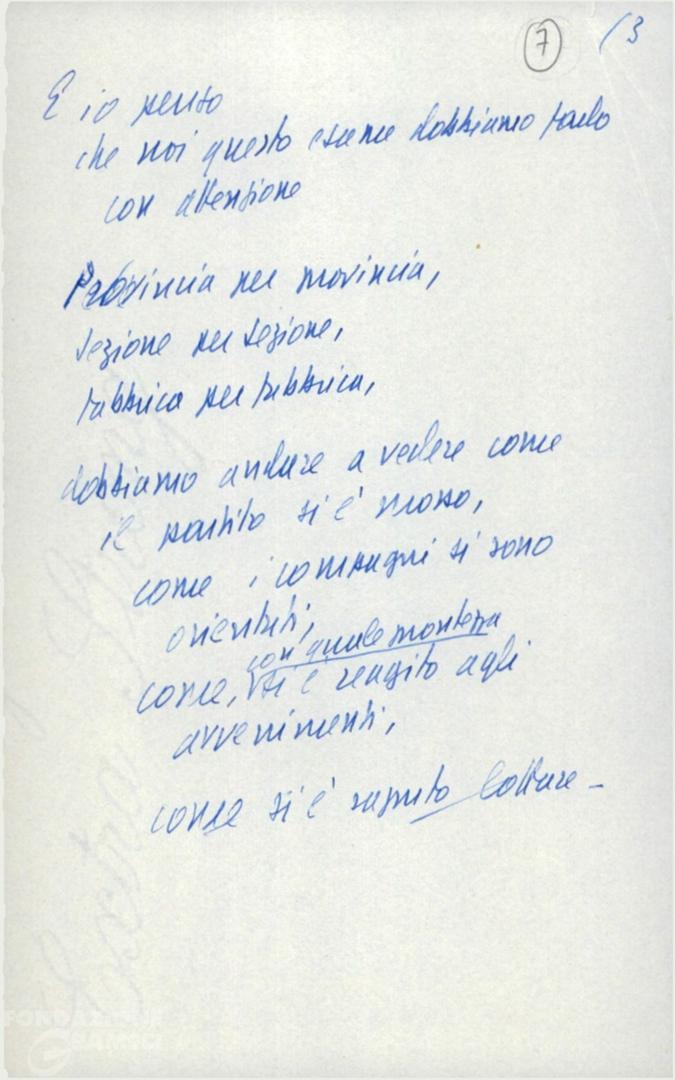 7 /3
E io penso
che noi questo esame dobbiamo farlo
con attenzione
Provincia per provincia,
sezione per sezione,
fabbrica per fabbrica,
dobbiamo andare a vedere come
il partito si è mosso,
come i compagni si sono
orientati,
con quale prontezza
come, si è reagito agli
avvenimenti,
come si è saputo lottare –
FONDAZIONE
GRAMSCI